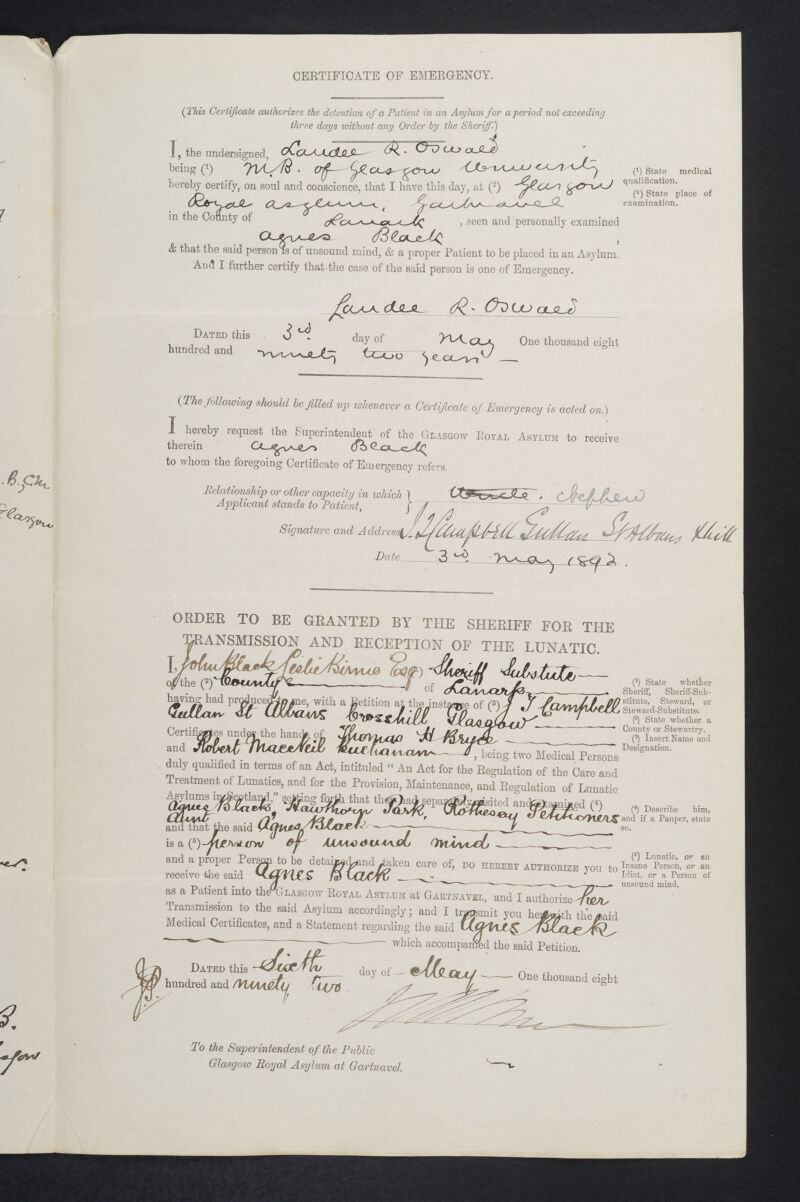 CERTIFICATE OF EMERGENCY.
(This Certificate authorizes the detention of a Patient in an Asylum for a period not exceeding
three days without any Order by the Sheriff.)
I, the undersigned, Landel R. Oswald
being (¹) M.B. of Glasgow University
hereby certify, on soul and conscience, that I have this day, at (²) Glasgow
Royal Asylum, Gartnavel
in the County of Lanark, seen and personally examined
Agnes Black,
& that the said person is of unsound mind, & a proper Patient to be placed in an Asylum.
And I further certify that the case of the said person is one of Emergency.
(¹) State medical
qualification.
(²) State place of
examination.
Landel R. Oswald
DATED this 3rd. day of May One thousand eight
hundred and ninety two years —
(The following should be filled up whenever a Certificate of Emergency is acted on.)
I hereby request the Superintendent of the GLASGOW ROYAL ASYLUM to receive
therein Agnes Black
to whom the foregoing Certificate of Emergency refers.
Relationship or other capacity in which
Applicant stands to Patient, } Uncle. Nephew
Signature and Address, J. T. Campbell Gullan St Albans Xhill
Date 3rd. May 1892.
ORDER TO BE GRANTED BY THE SHERIFF FOR THE
TRANSMISSION AND RECEPTION OF THE LUNATIC.
I, John Black Leslie Birnie Esq (¹) Sheriff Substute
of the (²) County of Lanark
having had produced to me, with a Petition at the instance of (³) J T Campbell
Gullan St Albans Crosshill Glasgow
Certificates under the hands of Thomas H Bryce
and Robert MacNeil Buchanan, being two Medical Persons
duly qualified in terms of an Act, intituled "An Act for the Regulation of the Care and
Treatment of Lunatics, and for the Provision, Maintenance, and Regulation of Lunatic
Asylums in Scotland," setting forth that they had separately visited and examined (⁴)
Agnes Black, Hawthorn Park, Rothesay Petitioners
Aunt
and that the said Agnes Black
is a (⁵) person of unsound mind
and a proper Person to be detained and taken care of, DO HEREBY AUTHORIZE you to
receive the said Agnes Black
as a Patient into the GLASGOW ROYAL ASYLUM AT GARTNAVEL, and I authorize her
Transmission to the said Asylum accordingly; and I transmit you herewith the said
Medical Certificates, and a Statement regarding the said Agnes Black
which accompanied the said Petition.
(¹) State whether
Sheriff, Sheriff-Sub-
stitute, Steward, or
Steward-Substitute.
(²) State whether a
County or Stewartry.
(³) Insert Name and
Designation.
(⁴) Describe him,
and if a Pauper, state
so.
(⁵) Lunatic, or an
Insane Person, or an
Idiot, or a Person of
unsound mind.
DATED this Sixth day of May One thousand eight
hundred and ninety two
To the Superintendent of the Public
Glasgow Royal Asylum at Gartnavel.
Glasgow